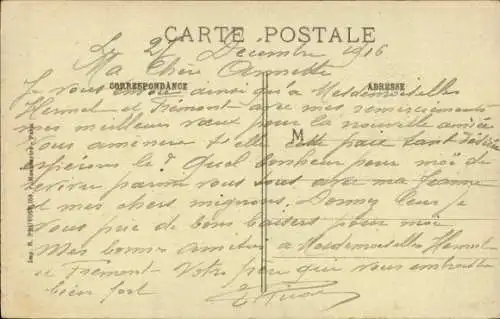 CARTE POSTALE
Le 27 Décembre 1916
Ma Chère Annette
CORRESPONDANCE
ADRESSE
Je vous envoie ainsi qu'à Mesdemoiselles
Hermet et Frémont avec mes remerciements
mes meilleurs vœux pour la nouvelle année
M
vous amènera t'elle cette paix tant désirée
espérons le? Quel bonheur pour moi de
revivre parmi vous tous avec ma Jeanne
et mes chers mignons. Donnez leur je
vous prie de bons baisers pour moi
Mes bonnes amitiés à Mesdemoiselles Hermet
et Frémont. Votre père qui vous embrasse
bien fort